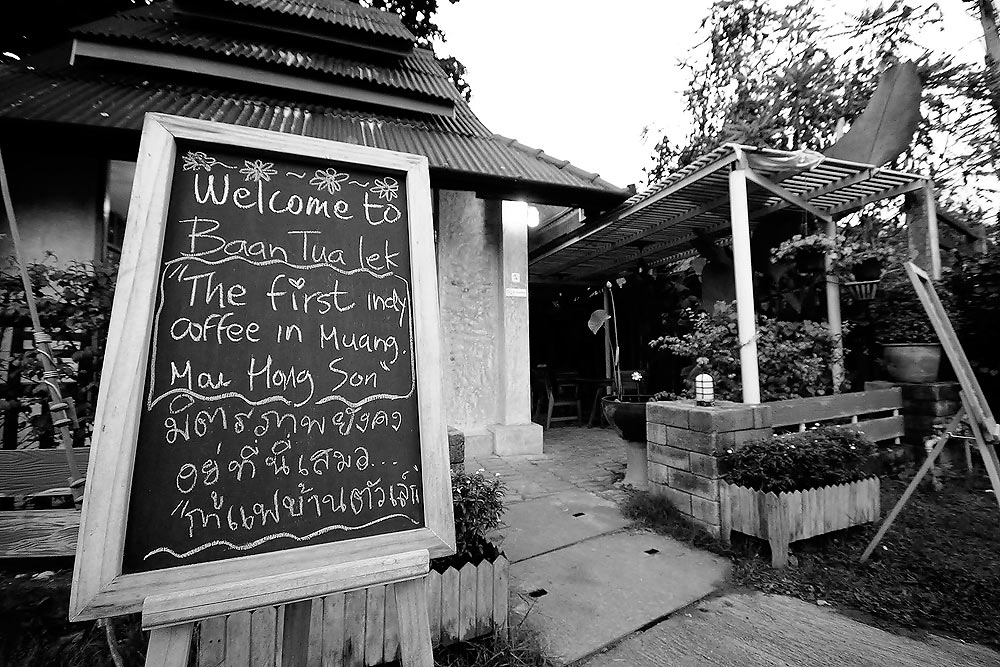 Welcome to
Baan Tua lek
"The first indy
coffee in Muang.
Mae Hong Son"
มิตรภาพยังคง
อยู่ที่นี่เสมอ....
"กาแฟบ้านตัวเล็ก